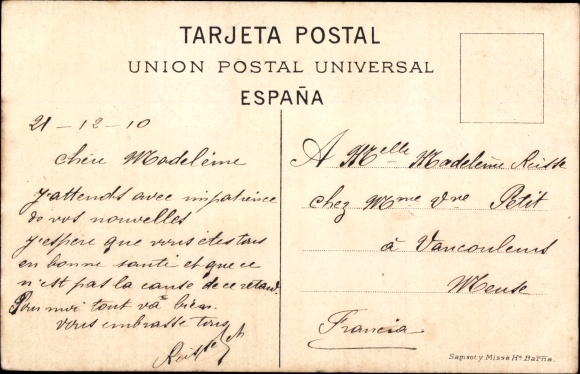 TARJETA POSTAL
UNION POSTAL UNIVERSAL
ESPAÑA
21-12-10
Chère Madeleine
J'attends avec impatience
de vos nouvelles
J'espere que vous êtes tous
en bonne santé et que ce
n'est pas la cause de ce retard.
Pour moi tout va bien.
Vous embrasse tous
A Melle Madeleine Reisse
chez Mme Vve Petit
à Vaucouleurs
Meuse
Francia
Samsot y Missé Hs Barña.